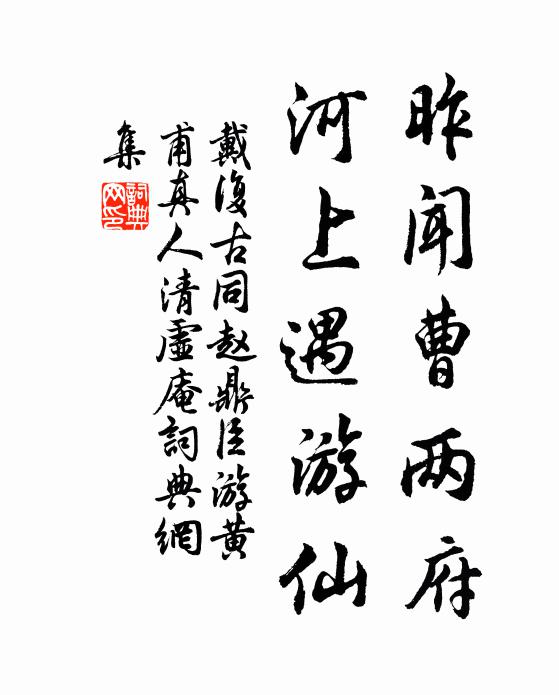 昨闻曹两府
河上遇游仙
戴復古同赵鼎臣游黄
甫真人清虚庵詞典網
集
詞典
网印